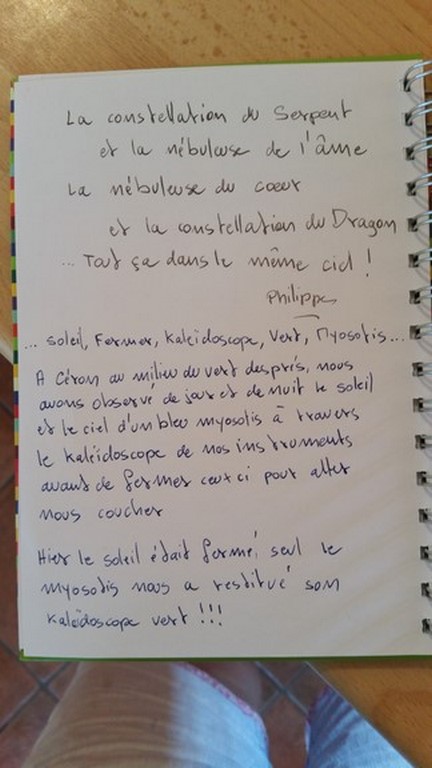 La constellation du Serpent
et la nébuleuse de l'âme
La nébuleuse du coeur
et la constellation du Dragon
... Tout ça dans le même ciel !
Philippe
... Soleil, Fermer, Kaleïdoscope, Vert, Myosotis...
A Céron au milieu du vert des prés, nous
avons observé de jour et de nuit le soleil
et le ciel d'un bleu myosotis à travers
le kaleïdoscope de nos instruments
avant de fermer ceux ci pour aller
nous coucher
Hier le soleil était fermé, seul le
myosotis nous a restitué son
Kaleïdoscope vert !!!